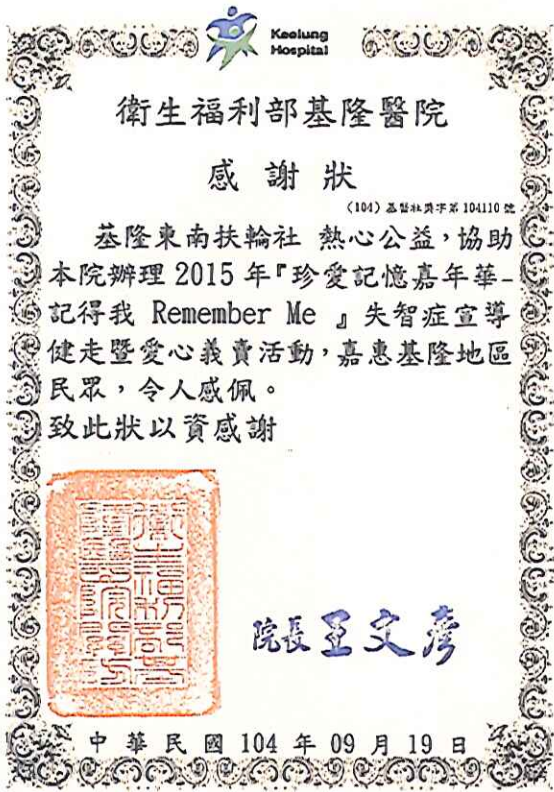 Keelung
Hospital
衛生福利部基隆醫院
感謝狀
(104) 基醫社獎字第 104110 號
基隆東南扶輪社 熱心公益,協助
本院辦理 2015 年『珍愛記憶嘉年華-
記得我 Remember Me 』失智症宣導
健走暨愛心義賣活動,嘉惠基隆地區
民眾,令人感佩。
致此狀以資感謝
院長王文彥
中華民國 104 年 09 月 19 日